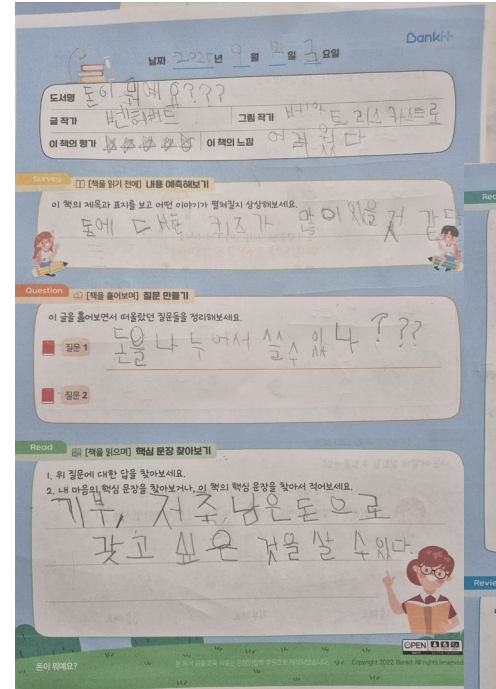 Banki
날짜 2025년 9월 일 금요일
도서명 돈이 뭐예요???
글 작가 벤 허버드 그림 작가 베아트리스 카스트로
이 책의 평가 ☆☆☆☆☆ 이 책의 느낌 어려웠다
Survey
[책을 읽기 전에] 내용 예측해보기
이 책의 제목과 표지를 보고 어떤 이야기가 펼쳐질지 상상해보세요.
돈에 대한 퀴즈가 많이 있을 것 같다
Question
[책을 훑어보며] 질문 만들기
이 글을 훑어보면서 떠올랐던 질문들을 정리해보세요.
질문 1 돈을 나누어서 쓸 수 있나???
질문 2
Read
[책을 읽으며] 핵심 문장 찾아보기
1. 위 질문에 대한 답을 찾아보세요.
2. 내 마음의 핵심 문장을 찾아보거나, 이 책의 핵심 문장을 찾아서 적어보세요.
기부, 저축, 남은 돈으로
갖고 싶은 것을 살 수 있다.
OPEN
돈이 뭐예요?
Copyright 2022. Banki All rights reserved
Rec
Revie